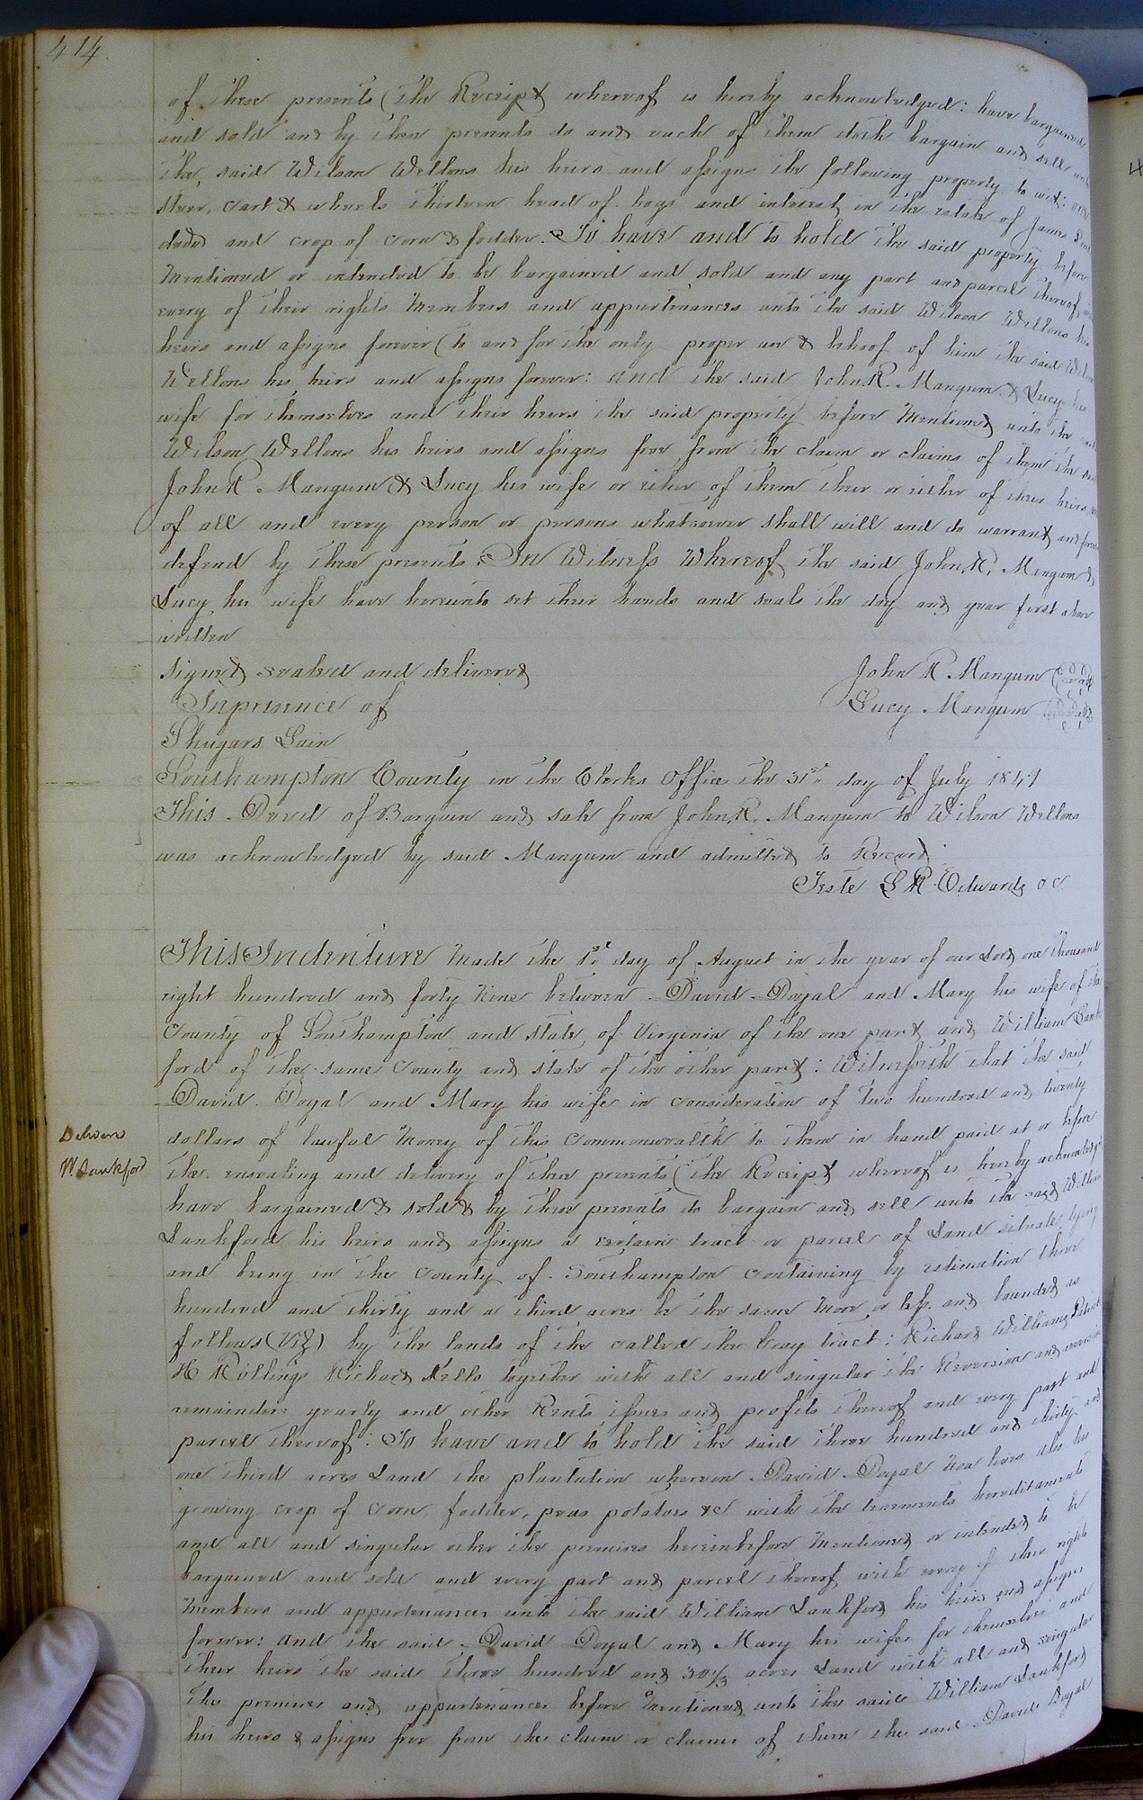 414.
of these presents (the Receipt whereof is hereby acknowledged: have bargained
and sold and by these presents do and each of them doth bargain and sell unto
the said Wilson Wellons his heirs and assigns the following property to wit: one
steer, cart & wheels thirteen head of hogs and interest in the estate of James
decd and crop of corn & fodder. To have and to hold the said property before
mentioned or intended to be bargained and sold and any part and parcel thereof
every of their rights members and appurtenances unto the said Wilson Wellons his
heirs and assigns forever (to and for the only proper use & behoof of him the said Wilson
Wellons his heirs and assigns forever: and the said John R. Mangum & Lucy his
wife for themselves and their heirs the said property before mentioned unto the said
Wilson Wellons his heirs and assigns free from the claim or claims of them the said
John R Mangum & Lucy his wife or either of them their or either of their heirs and
of all and every person or persons whatsoever shall will and do warrant and forever
defend by these presents. In Witness Whereof the said John R. Mangum &
Lucy his wife have hereunto set their hands and seals the day and year first above
written
signed sealed and delivered John R Mangum Seal
Inpresence of Lucy Mangum Seal
Shugars Lain
Southampton County in the Clerks Office the 31st day of July 1849
This Deed of Bargain and sale from John R. Mangum to Wilson Wellons
was acknowledged by said Mangum and admitted to Record
Teste L R Edwards cc
This Indenture Made the 1st day of August in the year of our Lord one thousand
eight hundred and forty nine between David Doyal and Mary his wife of the
County of Southampton and state of Virginia of the one part and William Lank
ford of the same County and state of the other part: Witnesseth that the said
David Doyal and Mary his wife in consideration of two hundred and twenty
Delivered
W Lankford
dollars of lawful money of this commonwealth to them in hand paid at or before
the ensealing and delivery of these presents (the Receipt whereof is hereby acknowledged
have bargained & sold & by these presents do bargain and sell unto the said William
Lankford his heirs and assigns a certain tract or parcel of Land situate lying
and being in the County of Southampton containing by estimation three
hundred and thirty and a third acres be the same more or less and bounded as
follows (viz) by the lands of the called the bray tract: Richard Williams,
H Rollings Richard together with all and singular the Reversion and
remainders yearly and other Rents issues and profits thereof and every part and
parcel thereof: To have and to hold the said three hundred and thirty and
one third acres Land the plantation whereon David Doyal now lives also his
growing crop of corn, fodder, peas potatoes &c with the tenements hereditaments
and all and singular other the premises hereinbefore mentioned or intended to be
bargained and sold and every part and parcel thereof with every of their rights
members and appurtenances unto the said William Lankford his heirs and assigns
forever: and the said David Doyal and Mary his wife for themselves and
their heirs the said three hundred and 30 1/3 acres Land with all and singular
the premises and appurtenances before mentioned unto the said William Lankford
his heirs & assigns free from the claim or claims of them the said David Doyal